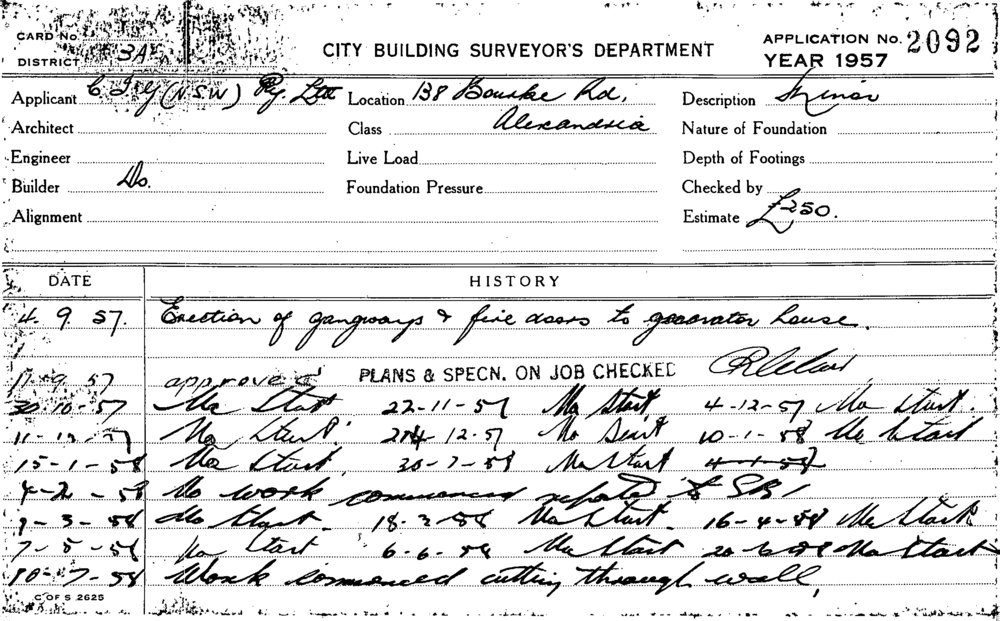 CARD No
DISTRICT 3A
CITY BUILDING SURVEYOR'S DEPARTMENT
APPLICATION No. 2092
YEAR 1957
Applicant (NSW) Pty. Ltd Location 138 Bourke Rd, Description Minor
Architect Class Alexandria Nature of Foundation
Engineer Live Load Depth of Footings
Builder Do. Foundation Pressure Checked by
Alignment Estimate £250.
DATE HISTORY
4. 9 57. Erection of gangways & fire doors to generator house.
17-9 57 approved PLANS & SPECN. ON JOB CHECKED
30-10-57 No Start 22-11-57 No Start 4-12-57 No Start.
No Start. 12-57 No Start 10-1-58 No Start
15-1-58 No Start. No Start
4-2-58 No work commenced reported to SBI
No Start. 18-3-58 No Start. 16-4-58 No Start
7-5-58 No Start 6-6-58 No Start 20-6-58 No Start
10-7-58 Work commenced cutting through wall,
C OF S 2625